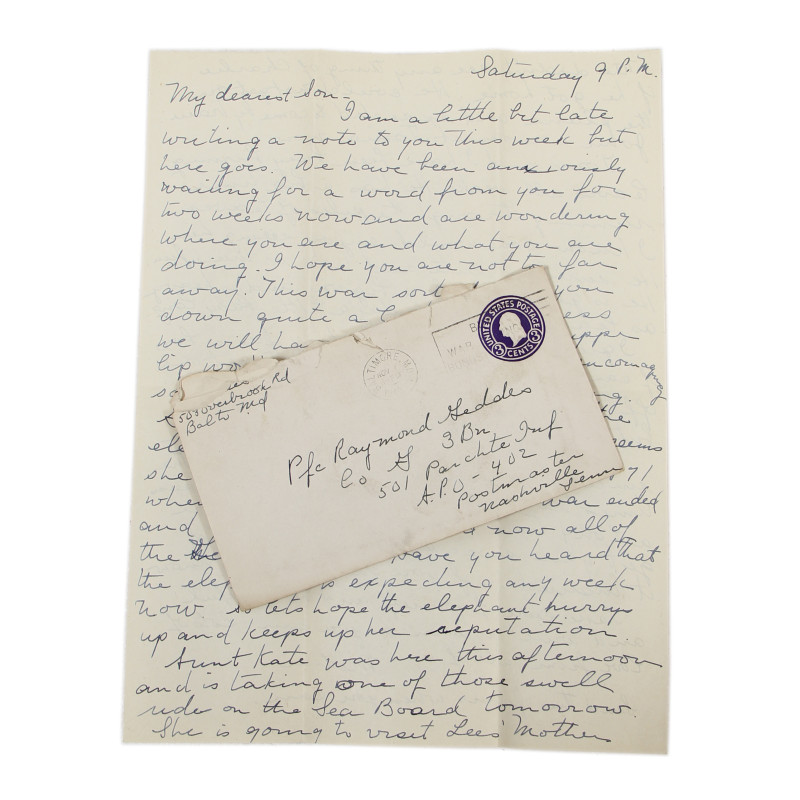 Saturday 9 P.M.
My dearest Son -
I am a little bit late
writing a note to you this week but
here goes. We have been anxiously
waiting for a word from you for
two weeks now and are wondering
where you are and what you are
doing. I hope you are not to far
away. This war sort you
down quite a
we will ha
lip
incomagncy
ele
she seems
whe 71
and war ended
the now all of
have you heard that
the elep is expecting any week
now so lets hope the elephant hurrys
up and keeps up her reputation.
Aunt Kate was here this afternoon
and is taking one of those swell
rides on the Sea Board tomorrow.
She is going to visit Lees' Mother
Overbrook Rd
Balto Md
TIMORE, M
WAR
UNITED STATES POSTAGE
3 CENTS 3
Pfc Raymond Geddes
Co G 3 Bn
501 Parchte Inf
A.P.O - 402
Postmaster
Nashville
Tenn